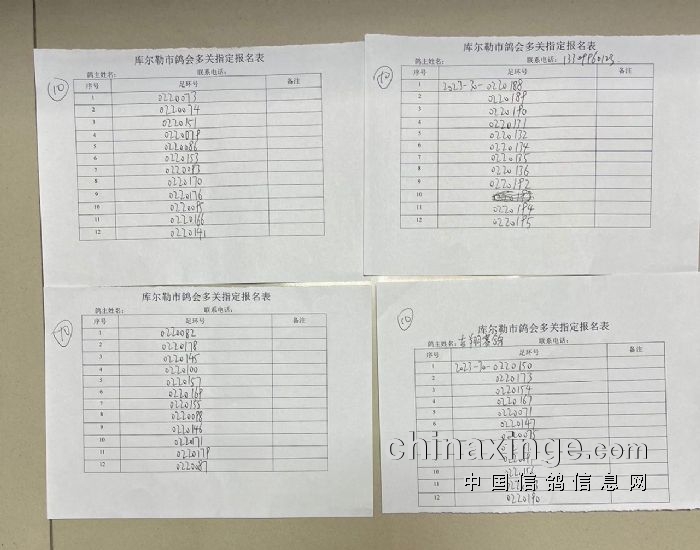 库尔勒市鸽会多关指定报名表
10
鸽主姓名: 联系电话:
序号 足环号 备注
1 0220073
2 0220074
3 0220151
4 0220079
5 0220086
6 0220153
7 0220083
8 0220170
9 0220176
10 0220085
11 0220166
12 0220141
库尔勒市鸽会多关指定报名表
10
鸽主姓名: 联系电话:
序号 足环号 备注
1 2023-30-0220188
2 0220189
3 0220190
4 0220131
5 0220132
6 0220134
7 0220135
8 0220136
9 0220192
10
11 0220194
12 0220195
库尔勒市鸽会多关指定报名表
10
鸽主姓名: 联系电话:
序号 足环号 备注
1 0220082
2 0220178
3 0220145
4 0220100
5 0220157
6 0220168
7 0220155
8 0220088
9 0220146
10 0220171
11 0220179
12 0220087
库尔勒市鸽会多关指定报名表
10
鸽主姓名: 联系电话:
序号 足环号 备注
1 2023-30-0220150
2 0220173
3 0220154
4 0220167
5 0220071
6 0220147
7 0220075
10
11
12 0220190
chinaxinge.com
中国信鸽信息网